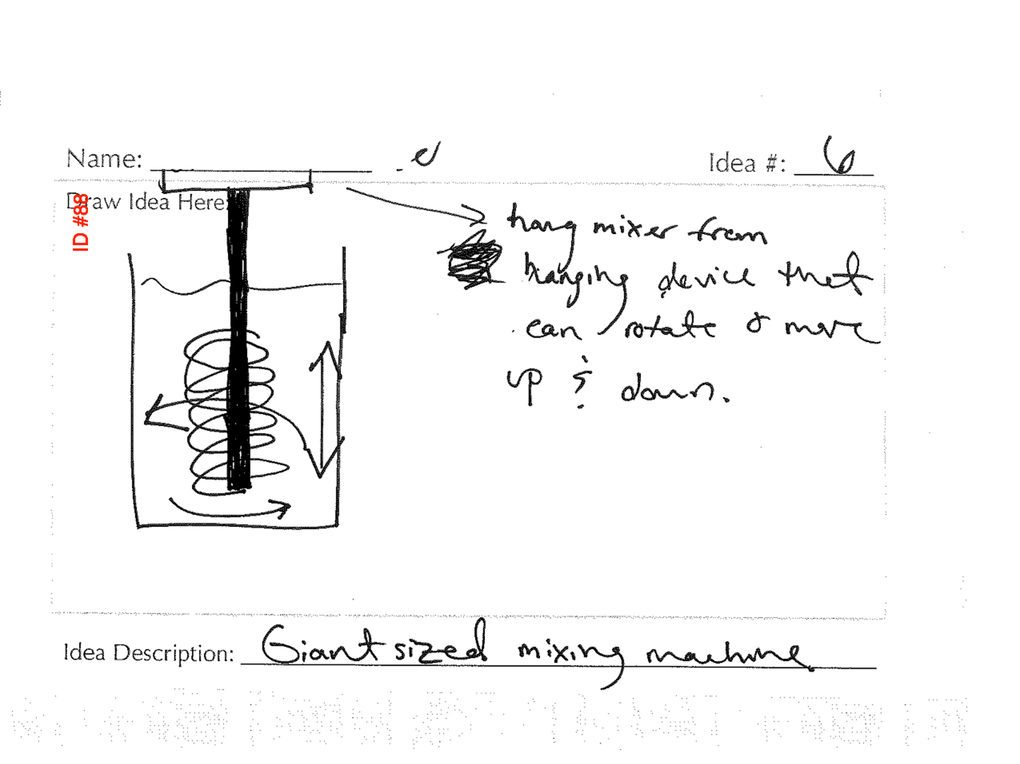 Name:
Idea #: 6
Draw Idea Here:
ID #88
hang mixer from
hanging device that
can rotate & move
up & down.
Idea Description: Giant sized mixing machine